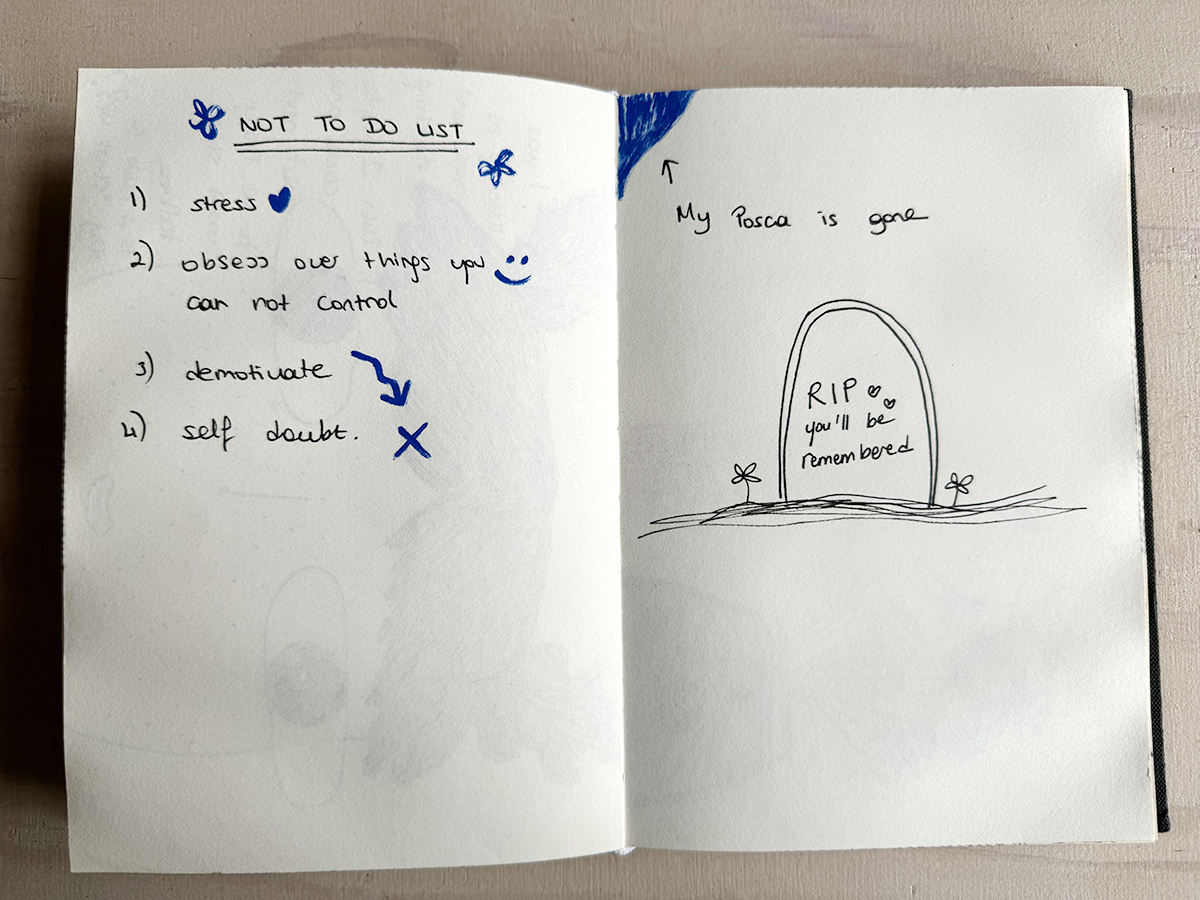 NOT TO DO LIST
1) stress
2) obsess over things you
can not control
3) demotivate
4) self doubt.
My Posca is gone
RIP
you'll be
remembered